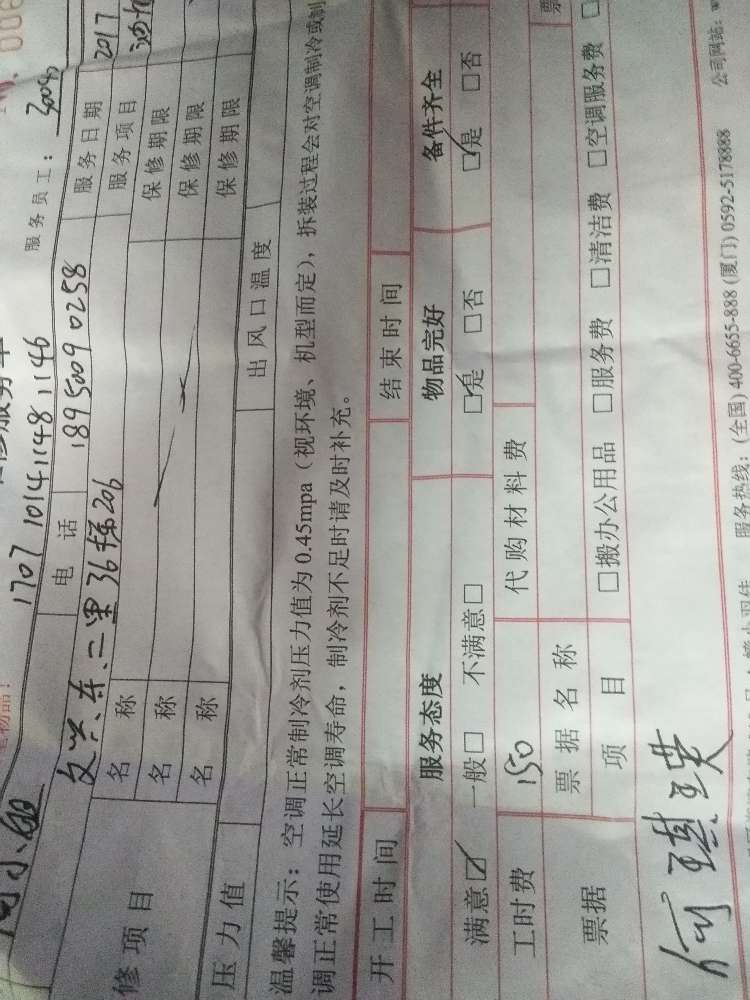 1707 10141148 1146 服务员工：
电话 18950090258 服务日期 2017
文兴东二里36梯206 服务项目
修项目 名称 保修期限
名称 保修期限
名称 保修期限
压力值 出风口温度
温馨提示：空调正常制冷剂压力值为0.45mpa（视环境、机型而定），拆装过程会对空调制冷或制
调正常使用延长空调寿命，制冷剂不足时请及时补充。
开工时间 结束时间
服务态度 物品完好 备件齐全
满意☑ 一般□ 不满意□ ☑是 □否 ☑是 □否
工时费 150 代购材料费
票据 票据名称 票
项目 □搬办公用品 □服务费 □清洁费 □空调服务费 □
何璂瑛
服务热线：(全国) 400-6655-888 (厦门) 0592-5178888 公司网站：w